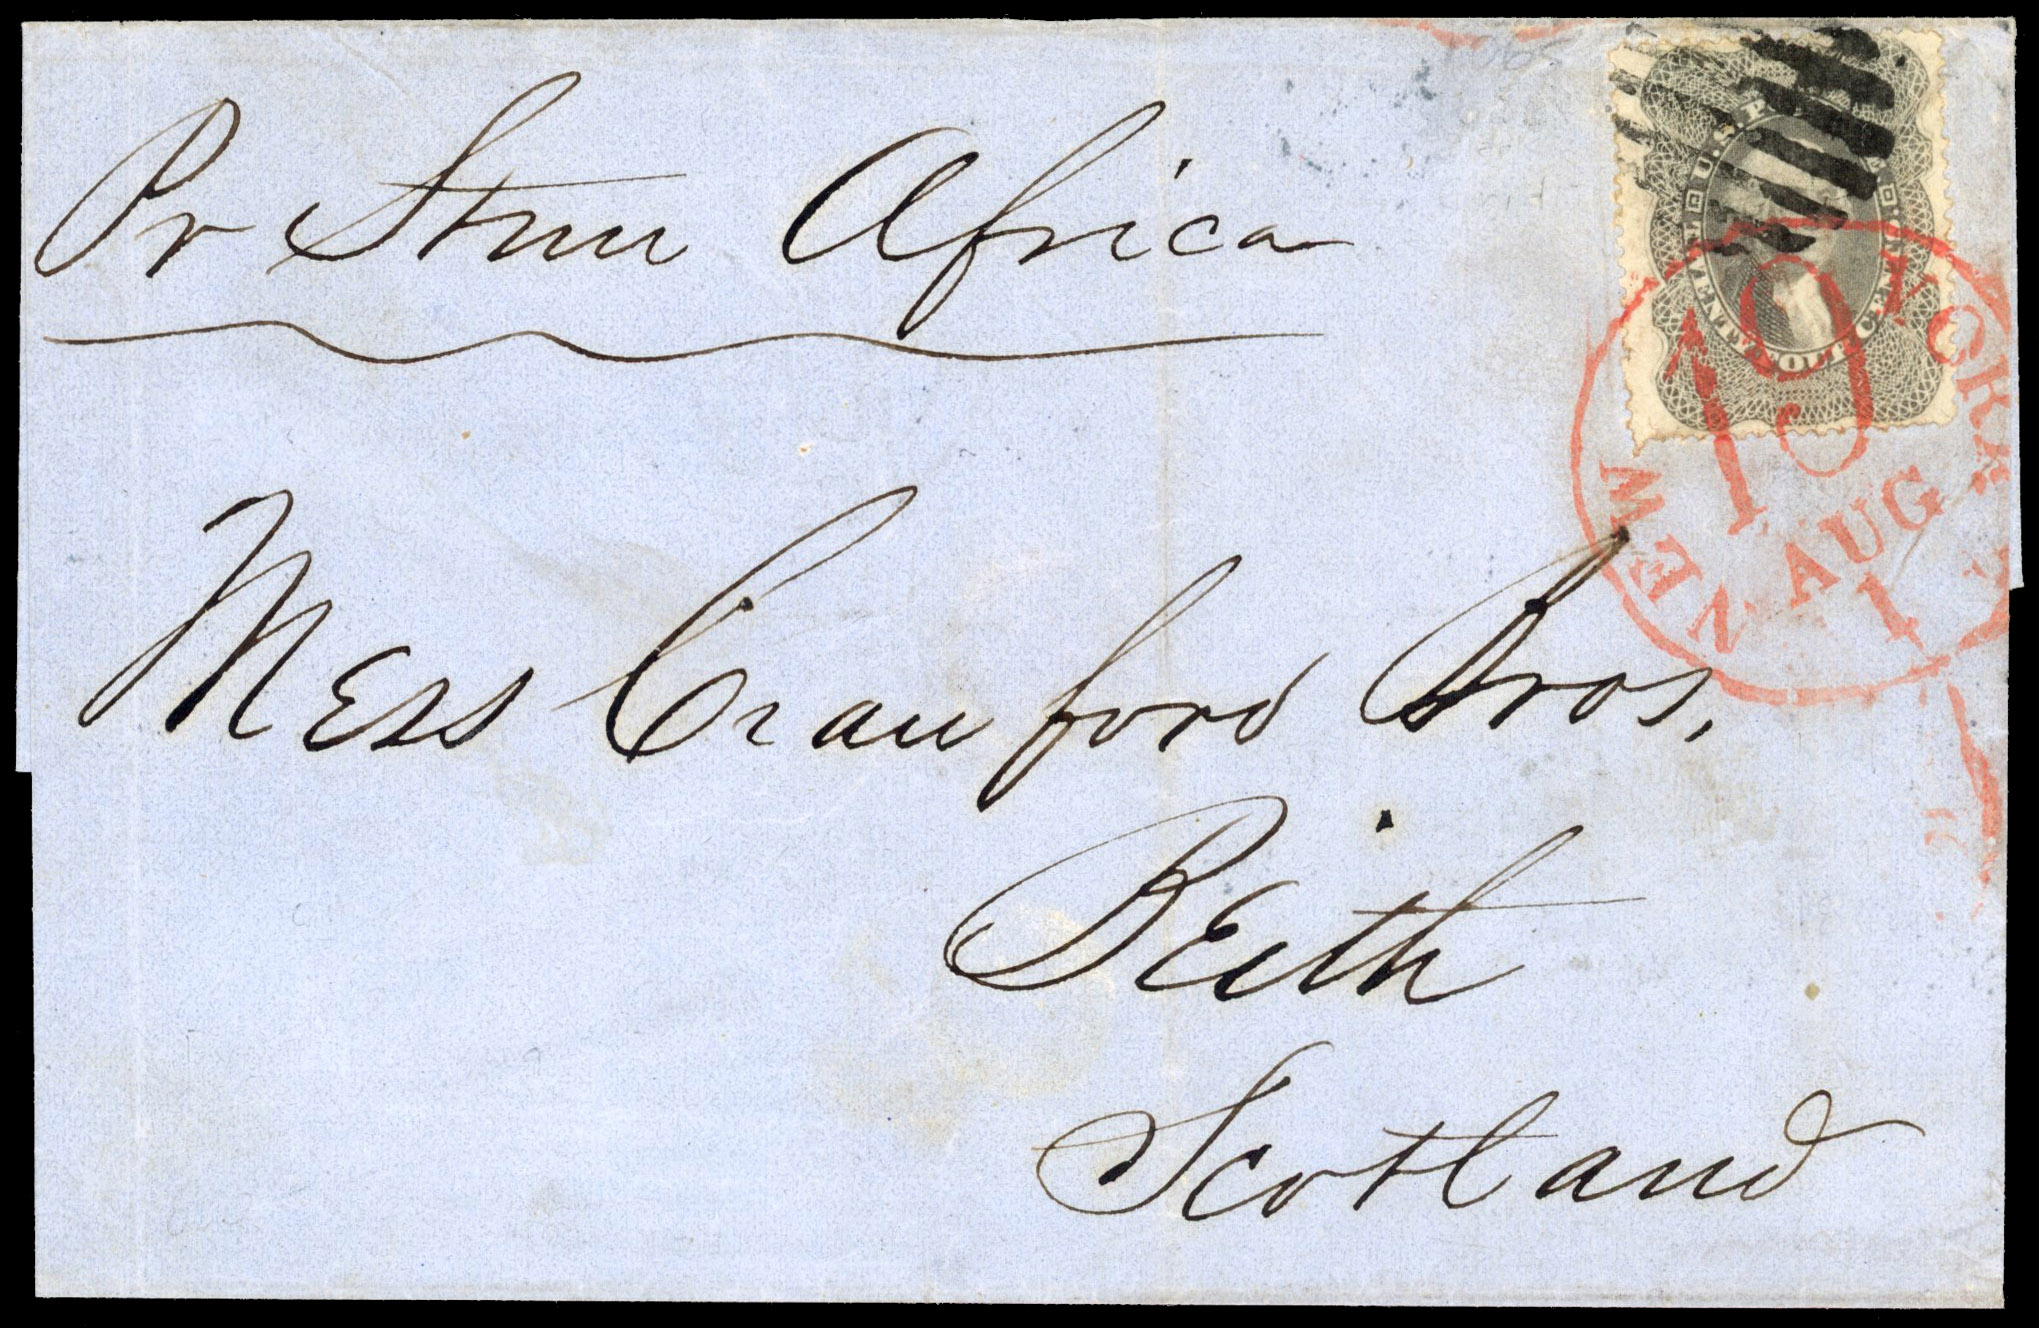 Pr Stmr Africa
U.S. POSTAGE
TWENTY FOUR CENTS
NEW YORK
19
AUG
1
Mess Crawford Bros.
Beith
Scotland